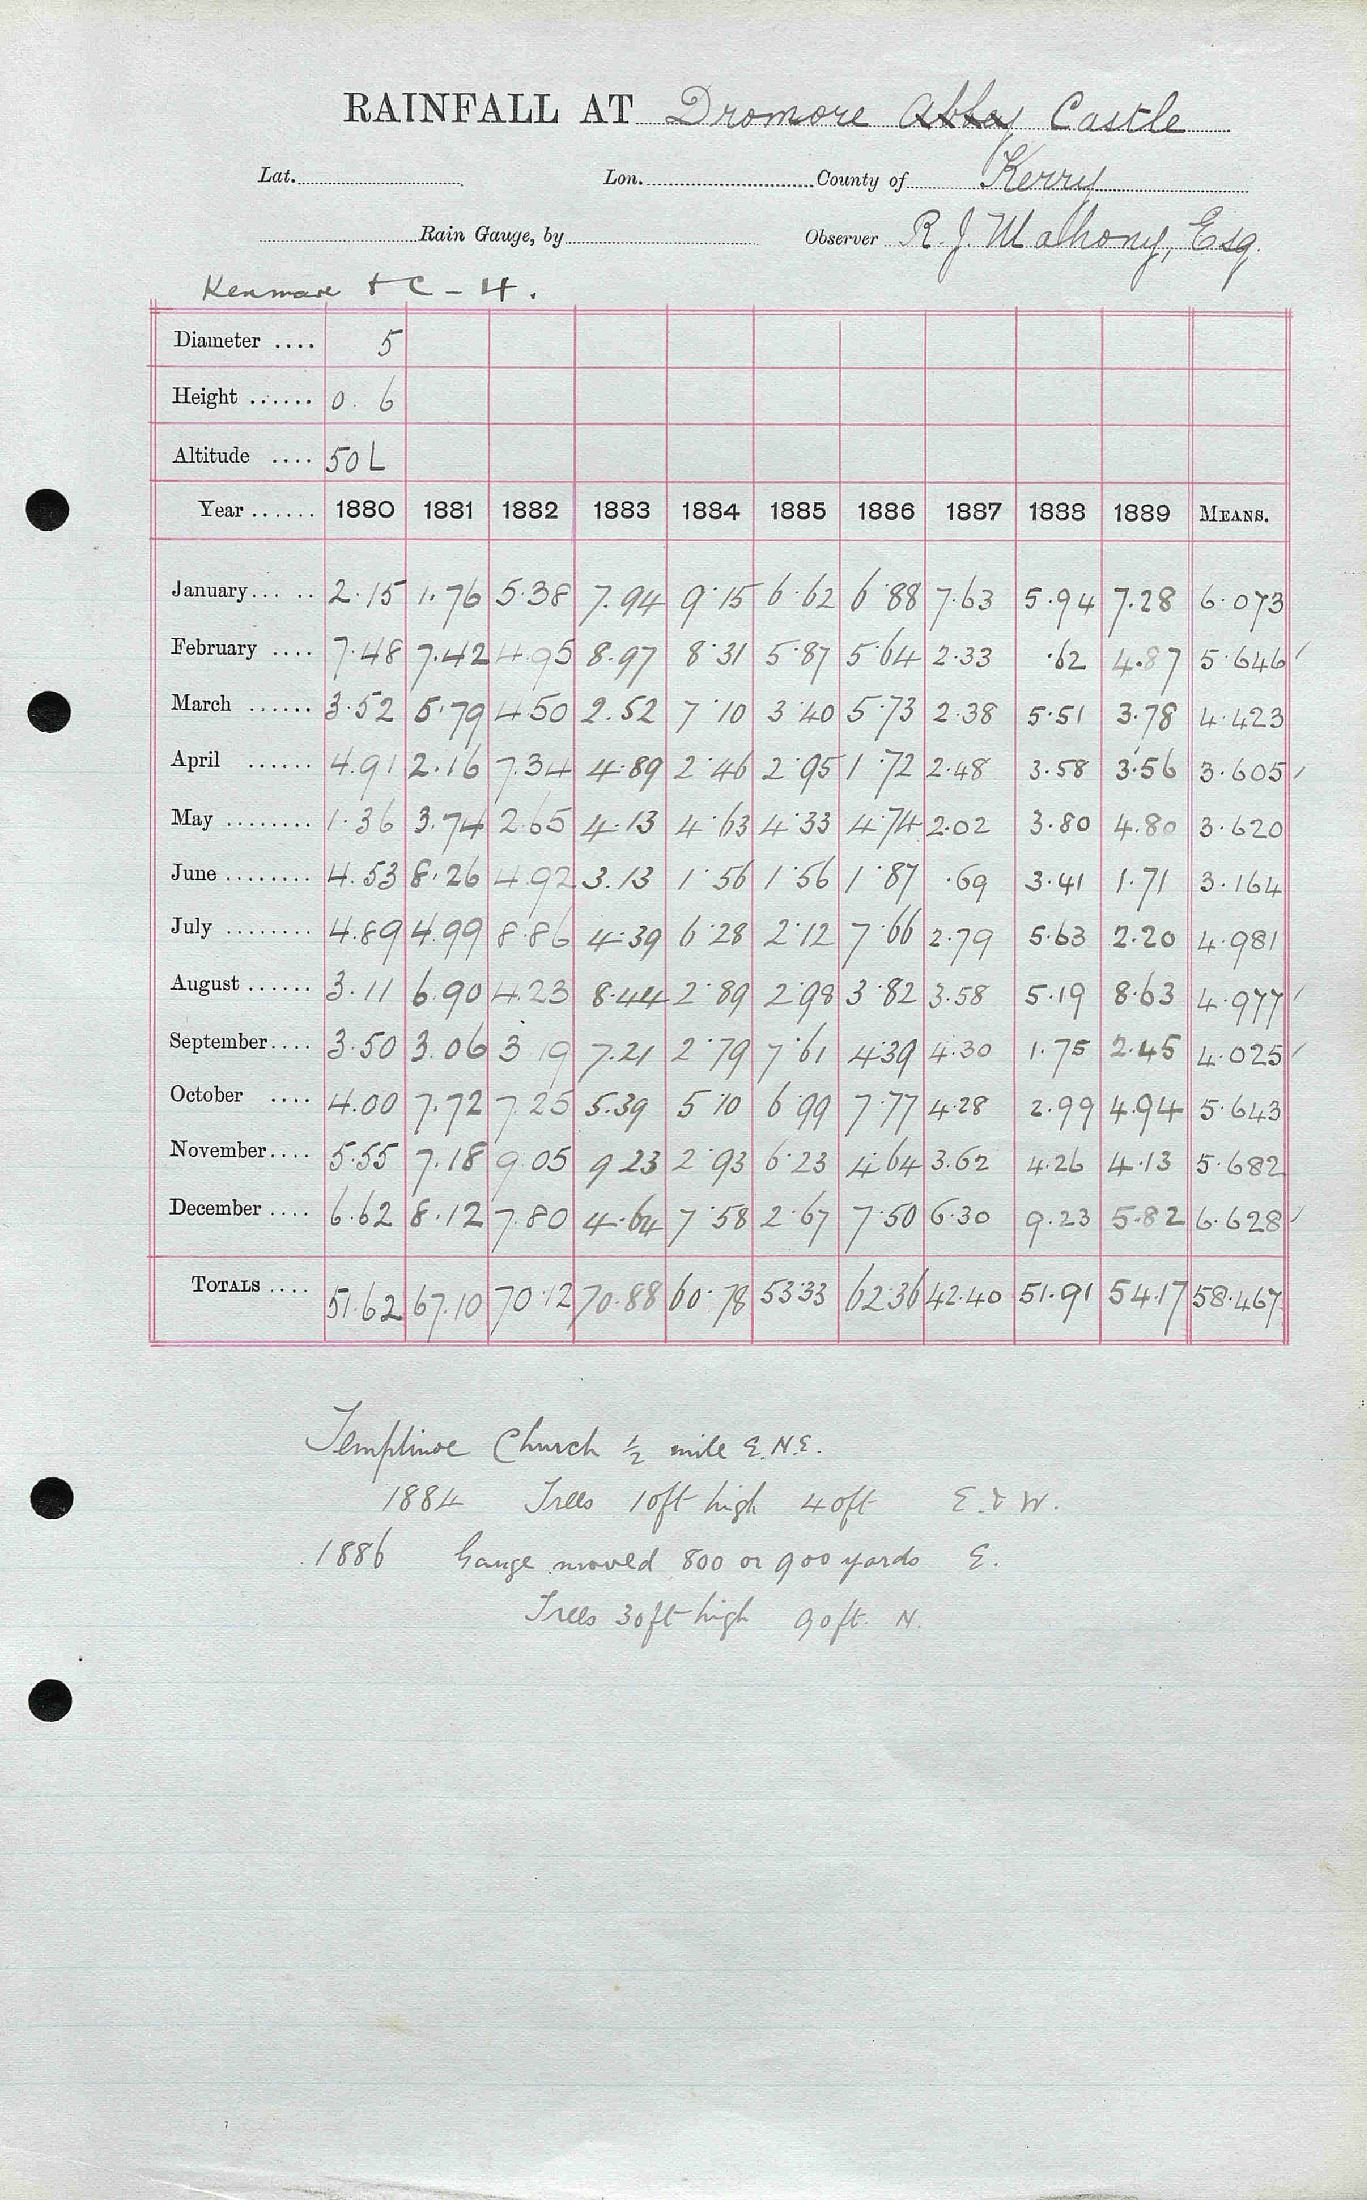 RAINFALL AT Dromore Abbey Castle
Lat. Lon. County of Kerry
Rain Gauge, by Observer R. J. Mahony, Esq.
Kenmare + C - 4.
Diameter .... 5
Height ...... 0. 6
Altitude .... 50 L
Year ...... 1880 1881 1882 1883 1884 1885 1886 1887 1888 1889 MEANS.
January... .. 2.15 1.76 5.38 7.94 9.15 6.62 6.88 7.63 5.94 7.28 6.073
February .... 7.48 7.42 4.95 8.97 8.31 5.87 5.64 2.33 .62 4.87 5.646
March ...... 3.52 5.79 4.50 2.52 7.10 3.40 5.73 2.38 5.51 3.78 4.423
April ...... 4.91 2.16 7.34 4.89 2.46 2.95 1.72 2.48 3.58 3.56 3.605
May ........ 1.36 3.74 2.65 4.13 4.63 4.33 4.74 2.02 3.80 4.80 3.620
June ........ 4.53 8.26 4.92 3.13 1.56 1.56 1.87 .69 3.41 1.71 3.164
July ........ 4.89 4.99 8.86 4.39 6.28 2.12 7.66 2.79 5.63 2.20 4.981
August ...... 3.11 6.90 4.23 8.44 2.89 2.98 3.82 3.58 5.19 8.63 4.977
September.... 3.50 3.06 3.19 7.21 2.79 7.61 4.39 4.30 1.75 2.45 4.025
October .... 4.00 7.72 7.25 5.39 5.10 6.99 7.77 4.28 2.99 4.94 5.643
November.... 5.55 7.18 9.05 9.23 2.93 6.23 4.64 3.62 4.26 4.13 5.682
December .... 6.62 8.12 7.80 4.64 7.58 2.67 7.50 6.30 9.23 5.82 6.628
TOTALS .... 51.62 67.10 70.12 70.88 60.78 53.33 62.36 42.40 51.91 54.17 58.467
Templinoe Church ½ mile E.N.E.
1884 Trees 10ft high 40ft E. & W.
1886 Gauge moved 800 or 900 yards E.
Trees 30ft high 90ft. N.